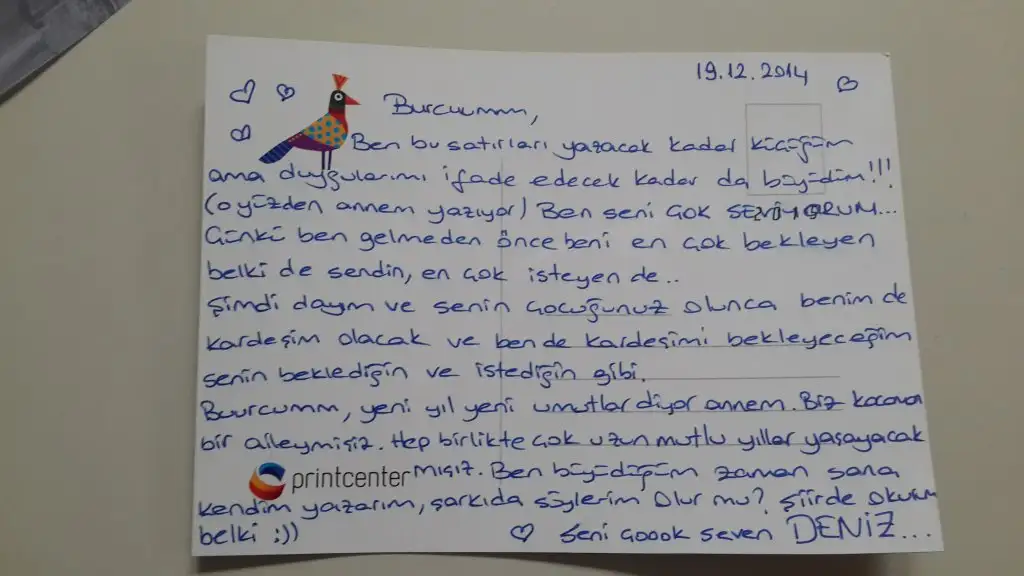 19.12.2014
Burcuumm,
Ben bu satırları yazacak kadar küçüğüm
ama duygularımı ifade edecek kadar da büyüdüm!!!
(o yüzden annem yazıyor) Ben seni çok SEVİYORUM...
Çünkü ben gelmeden önce beni en çok bekleyen
belki de sendin, en çok isteyen de..
Şimdi dayım ve senin çocuğunuz olunca benim de
kardeşim olacak ve ben de kardeşimi bekleyeceğim
senin beklediğin ve istediğin gibi.
Buurcumm, yeni yıl yeni umutlar diyor annem. Biz kocaman
bir aileymişiz. Hep birlikte çok uzun mutlu yıllar yaşayacak
printcenter mışız. Ben büyüdüğüm zaman sana
kendim yazarım, şarkıda söylerim olur mu? Şiirde okurum
belki :)) Seni çoook seven DENİZ...